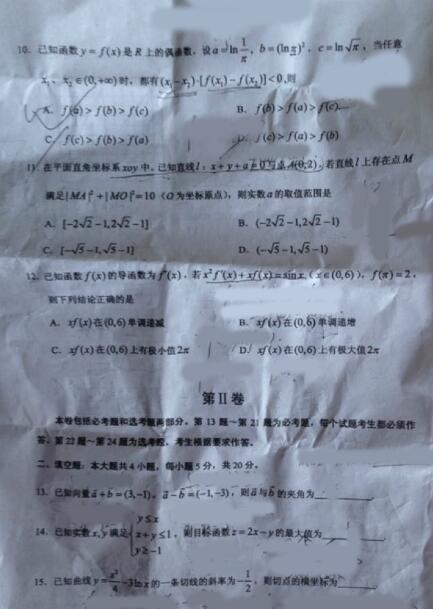 10. 已知函数 y = f(x) 是 R 上的偶函数，设 a = ln 1/π，b = (lnπ)²，c = ln√π，当任意
x₁、x₂ ∈ (0,+∞) 时，都有 (x₁ − x₂)·[f(x₁) − f(x₂)] < 0，则
A. f(a) > f(b) > f(c) B. f(b) > f(a) > f(c)
C. f(c) > f(b) > f(a) D. f(c) > f(a) > f(b)
11. 在平面直角坐标系 xoy 中，已知直线 l：x + y + a = 0 与点 A(0,2)，若直线 l 上存在点 M
满足 |MA|² + |MO|² = 10（O 为坐标原点），则实数 a 的取值范围是
A. [−2√2 − 1, 2√2 − 1] B. (−2√2 − 1, 2√2 − 1)
C. [−√5 − 1, √5 − 1] D. (−√5 − 1, √5 − 1)
12. 已知函数 f(x) 的导函数为 f'(x)，若 x²f'(x) + xf(x) = sin x（x ∈ (0,6)），f(π) = 2，
则下列结论正确的是
A. xf(x) 在 (0,6) 单调递减 B. xf(x) 在 (0,6) 单调递增
C. xf(x) 在 (0,6) 上有极小值 2π D. xf(x) 在 (0,6) 上有极大值 2π
第Ⅱ卷
本卷包括必考题和选考题两部分。第 13 题～第 21 题为必考题，每个试题考生都必须作
答。第 22 题～第 24 题为选考题，考生根据要求作答。
二、填空题：本大题共 4 小题，每小题 5 分，共 20 分。
13. 已知向量 a + b = (3,−1)，a − b = (−1,−3)，则 a 与 b 的夹角为
14. 已知实数 x, y 满足 { y ≤ x, x + y ≤ 1, y ≥ −1，则目标函数 z = 2x − y 的最大值为
15. 已知曲线 y = x²/4 − 3ln x 的一条切线的斜率为 −1/2，则切点的横坐标为